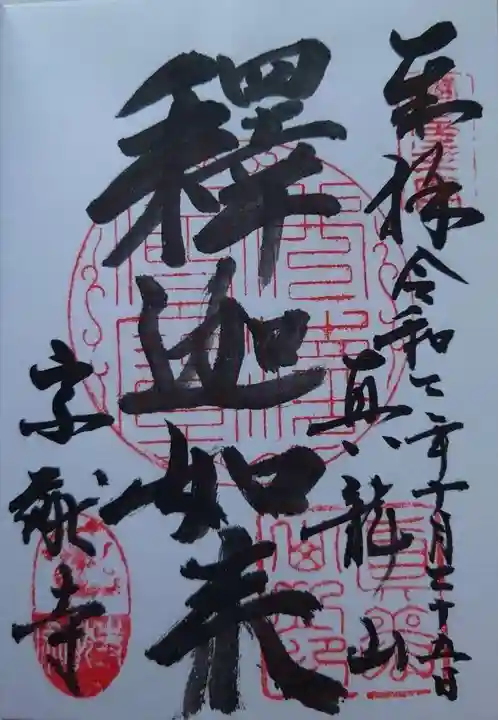 奉拝 令和二年十月二十五日
真龍山
釋迦如来
宗猷寺